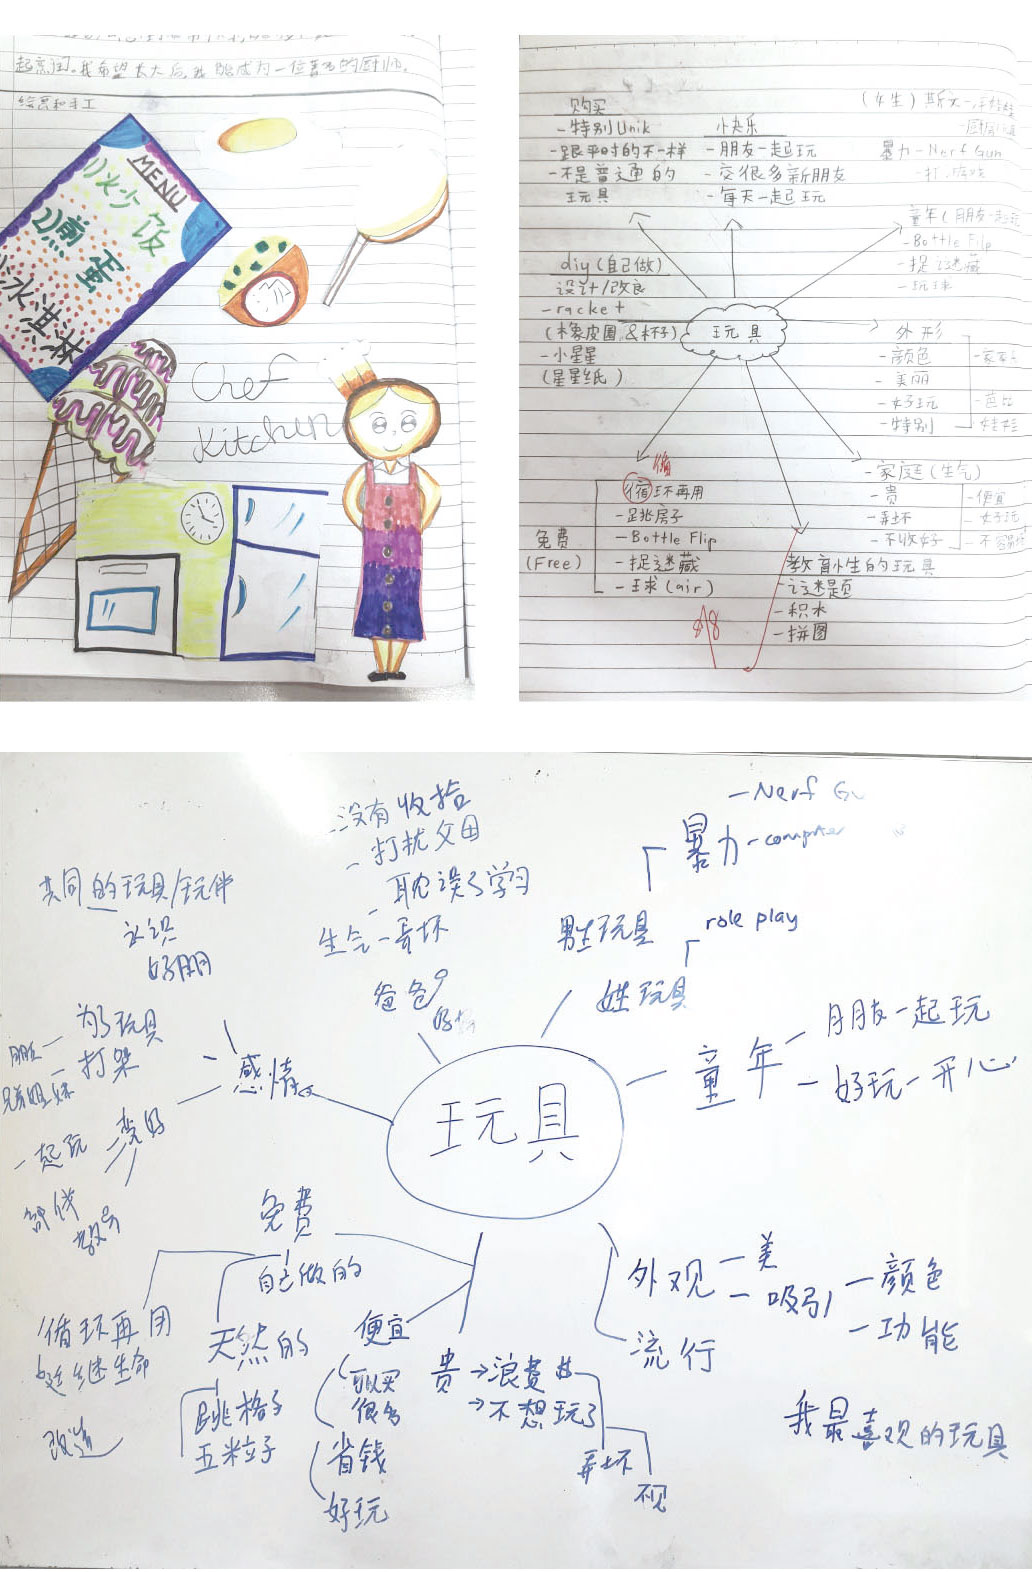 起烹饪。我希望长大后,我能成为一位著名的厨师。
绘画和手工
MENU
1)炒饭
2)煎蛋
冰淇淋
Chef
Kitchen
购买
-特别Unik
-跟平时的不一样
-不是普通的
玩具
小快乐
-朋友一起玩
-交很多新朋友
-每天一起玩
(女生)斯文-
暴力-Nerf Gun
-打游戏
童年(朋友一起玩
-Bottle Flip
-捉迷藏
-玩球
diy(自己做)
设计/改良
-racket
(橡皮圈&杯子)
-小星星
(星星纸)
玩具
外形
-颜色
-美丽
-好玩
-特别
-芭比
娃娃
-家庭(生气)
-贵
-弄坏
-不收好
-便宜
-好玩
免费
(Free)
循
循环再用
-跳房子
-Bottle Flip
-捉迷藏
-球(air)
教育小生的玩具
-谜题
-积木
-拼图
-没有收拾
-打扰父母
-耽误了学习
生气-弄坏
爸爸
-Nerf Gu
暴力-computer
男生玩具
role play
姓玩具
共同的玩具/玩伴
认识
好朋
为了玩具
打架
朋友
兄弟姐妹
感情
变好
一起玩
玩具
童年
-朋友一起玩
-好玩-开心
免费
自己做的
循环再用
延继生命
改造
天然的
跳格子
五粒子
便宜
可以买
很多
省钱
好玩
贵→浪费
→不想玩了
弄坏
外观-美
-吸引
-颜色
-功能
流行
我最喜观的玩具